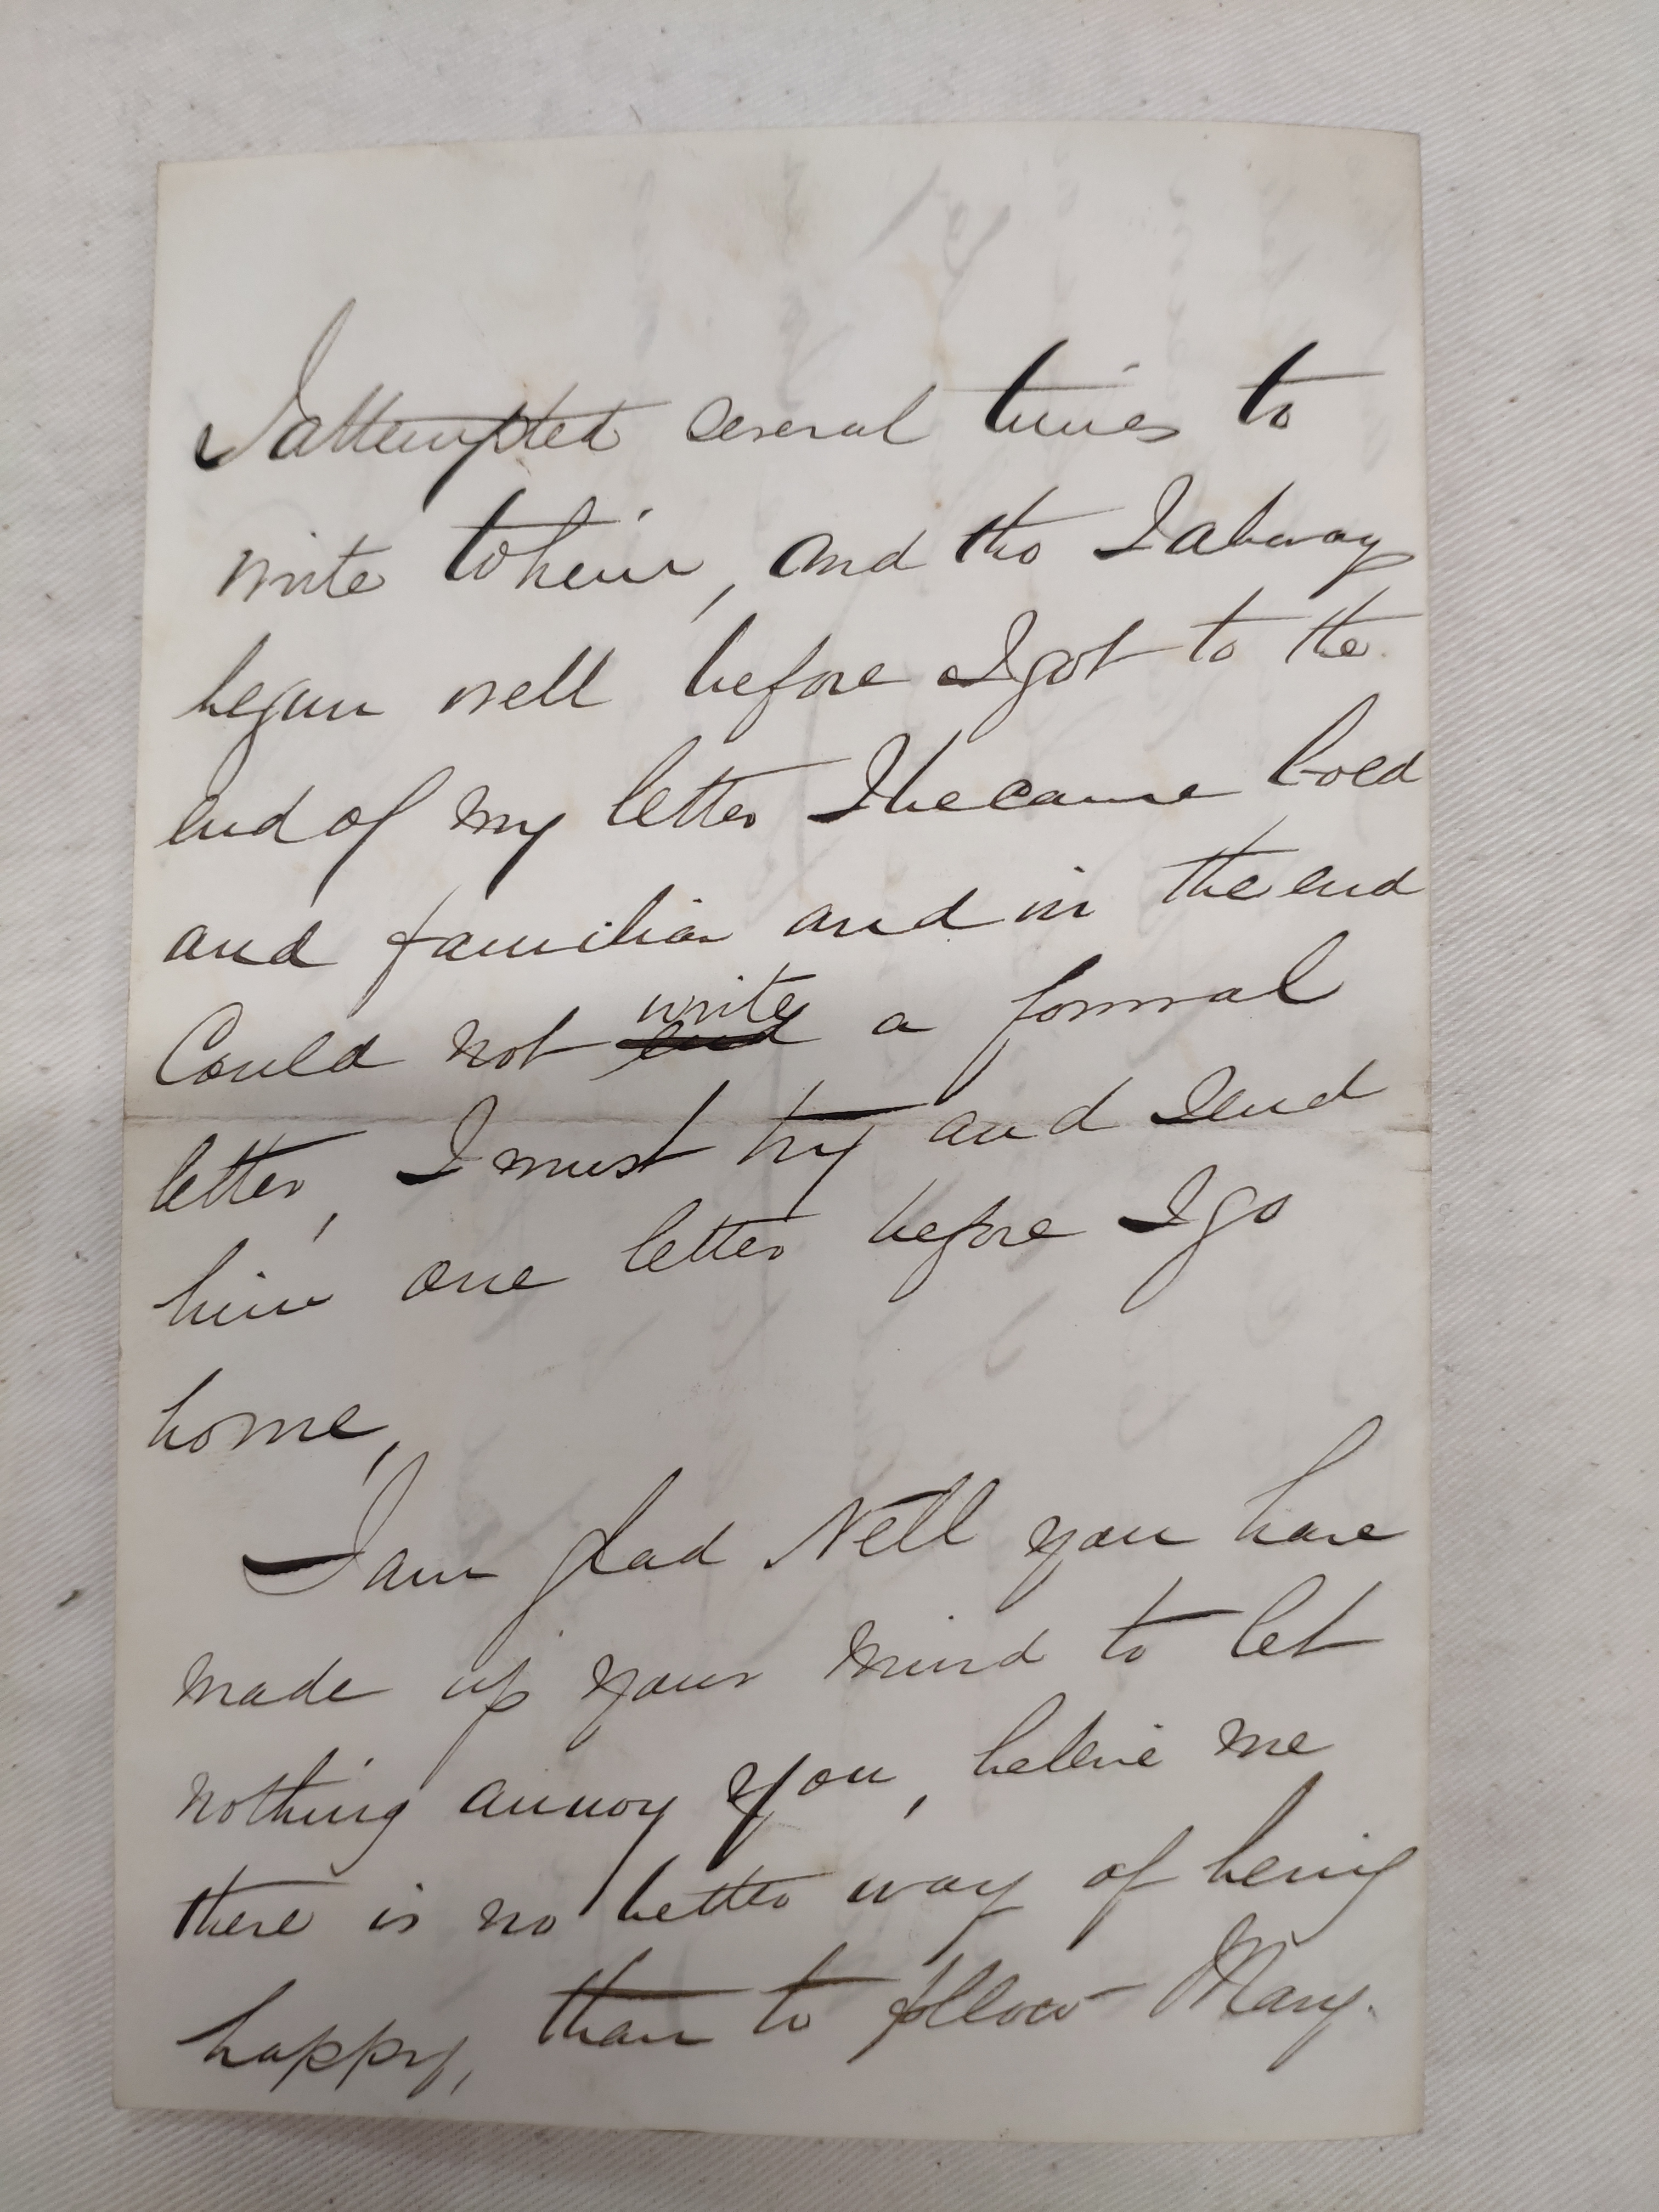 I attempted several times to
write to him, and tho I alway
begun well before I got to the
end of my letter I became bold
and familiar and in the end
Could not end write a formal
letter, I must try and send
him one letter before I go
home,
I am glad Nell you have
made up your mind to let
nothing annoy you, beleive me
there is no better way of being
happy, than to follow Mary.